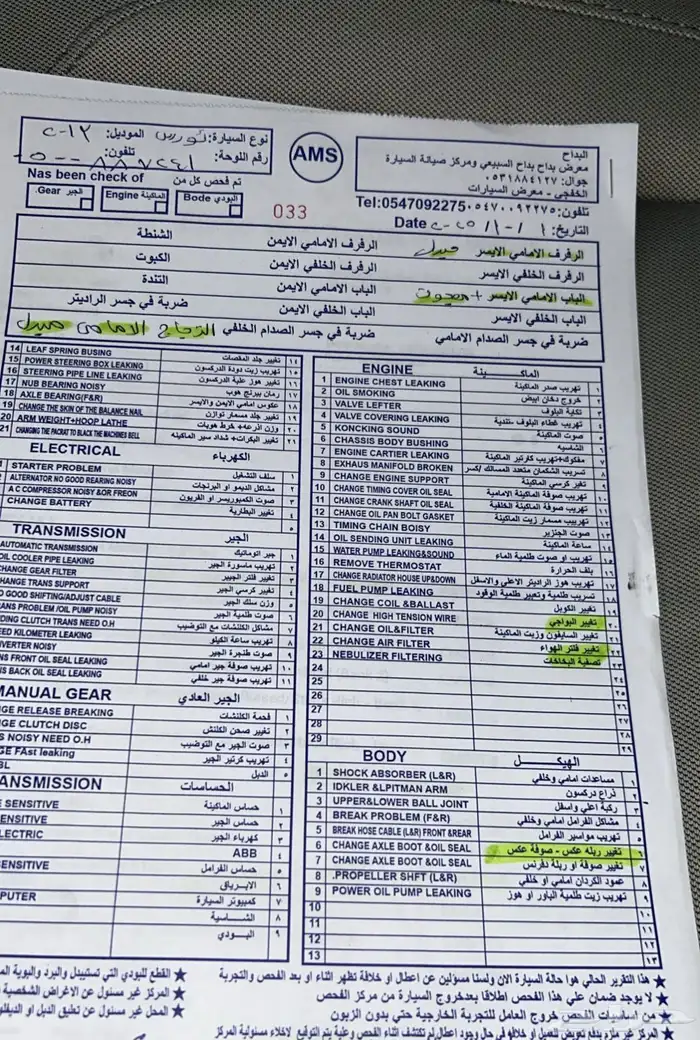 البداح
معرض بداح بداح السبيعي ومركز صيانة السيارة
جوال: ٠٥٣١٨٨٤١٢٧
الخفجي - معرض السيارات
AMS
نوع السيارة: تورس الموديل: ٢٠١٢
رقم اللوحة: تلفون:
تم فحص كل من
Nas been check of
البودي Bode
الماكينة Engine
الجير Gear.
033
تلفون: ٠٥٤٧٠٩٢٢٧٥ Tel:0547092275
التاريخ: Date
الرفرف الامامي الايسر مبدل الرفرف الامامي الايمن الشنطة
الرفرف الخلفي الايسر الرفرف الخلفي الايمن الكبوت
الباب الامامي الايسر + معجون الباب الامامي الايمن التندة
الباب الخلفي الايسر الباب الخلفي الايمن ضربة في جسر الراديتر
ضربة في جسر الصدام الامامي ضربة في جسر الصدام الخلفي الزجاج الامامي مبدل
14 LEAF SPRING BUSING تغيير جلد المقصات ١٤
15 POWER STEERING BOX LEAKING تهريب زيت دودة الدركسون ١٥
16 STEERING PIPE LINE LEAKING تغيير هوز علبة الدركسون ١٦
17 NUB BEARING NOISY رمان بيرنج هوب ١٧
18 AXLE BEARING(F&R) عكوس امامي الايمن والايسر ١٨
19 CHANGE THE SKIN OF THE BALANCE NAIL تغيير جلد مسمار توازن ١٩
20 ARM WEIGHT+HOOP LATHE وزن اذرعه + خرط هوبات ٢٠
21 CHANGING THE PACRAT TO BLACK THE MACHINES BELL تغيير البكرات + شداد سير الماكينه ٢١
ELECTRICAL الكهرباء
STARTER PROBLEM سلف التشغيل ١
ALTERNATOR NO GOOD REARING NOISY مشاكل الدينمو او البرنجات ٢
A C COMPRESSOR NOISY &OR FREON صوت الكمبروسير او الفريون ٣
CHANGE BATTERY تغيير البطارية ٤
٥
TRANSMISSION الجير
AUTOMATIC TRANSMISSION جير اتوماتيك ١
OIL COOLER PIPE LEAKING تهريب ماسورة الجير ٢
CHANGE GEAR FILTER تغيير فلتر الجيير ٣
HANGE TRANS SUPPORT تغيير كرسي الجير ٤
O GOOD SHIFTING/ADJUST CABLE وزن سلك الجير ٥
ANS PROBLEM /OIL PUMP NOISY صوت طلمبة الجير ٦
DING CLUTCH TRANS NEED O.H مشاكل الكلتشات مع التوضيب ٧
ED KILOMETER LEAKING تهريب ساعة الكيلو ٨
VERTER NOISY صوت طنجرة الجير ٩
NS FRONT OIL SEAL LEAKING تهريب صوفة جير امامي ١٠
IS BACK OIL SEAL LEAKING تهريب صوفة جير خلفي ١١
MANUAL GEAR الجير العادي
GE RELEASE BREAKING فحمة الكلتشات ١
GE CLUTCH DISC تغيير صحن الكلتش ٢
S NOISY NEED O.H صوت الجير مع التوضيب ٣
GE FAst leaking تهريب كرتير الجير ٤
BL الدبل ٥
ANSMISSION الحساسات
E SENSITIVE حساس الماكينة ١
ENSITIVE حساس الجير ٢
LECTRIC كهرباء الجير ٣
ABB ٤
ENSITIVE حساس الفرامل ٥
الايرباق ٦
PUTER كمبيوتر السيارة ٧
الشاسية ٨
البودي ٩
ENGINE الماكينة
1 ENGINE CHEST LEAKING تهريب صدر الماكينة ١
2 OIL SMOKING خروج دخان ابيض ٢
3 VALVE LEFTER تكاية البلوف ٣
4 VALVE COVERING LEAKING تهريب غطاء البلوف -تندية ٤
5 KONCKING SOUND صوت الماكينة ٥
6 CHASSIS BODY BUSHING الشاسية ٦
7 ENGINE CARTIER LEAKING مفكوك+تهريب كارتير الماكينة ٧
8 EXHAUS MANIFOLD BROKEN تسريب الشكمان متعدد المسالك /كسر ٨
9 CHANGE ENGINE SUPPORT تغير كرسي الماكينة ٩
10 CHANGE TIMING COVER OIL SEAL تهريب صوفة الماكينة الامامية ١٠
11 CHANGE CRANK SHAFT OIL SEAL تهريب صوفة الماكينة الخلفية ١١
12 CHANGE OIL PAN BOLT GASKET تهريب مسمار زيت الماكينة ١٢
13 TIMING CHAIN BOISY صوت الجنزير ١٣
14 OIL SENDING UNIT LEAKING ساعة الماكينة ١٤
15 WATER PUMP LEAKING&SOUND تهريب او صوت طلمبة الماء ١٥
16 REMOVE THERMOSTAT بلف الحرارة ١٦
17 CHANGE RADIATOR HOUSE UP&DOWN تهريب هوز الراديتر الاعلي والاسفل ١٧
18 FUEL PUMP LEAKING تسريب طلمبة وتعبير طلمبة الوقود ١٨
19 CHANGE COIL &BALLAST تغيير الكويل ١٩
20 CHANGE HIGH TENSION WIRE تغيير البواجي ٢٠
21 CHANGE OIL&FILTER تغيير السايفون وزيت الماكينة ٢١
22 CHANGE AIR FILTER تغيير فلتر الهواء ٢٢
23 NEBULIZER FILTERING تصفية البخاخات ٢٣
24 ٢٤
25 ٢٥
26 ٢٦
27 ٢٧
28 ٢٨
29 ٢٩
BODY الهيكل
1 SHOCK ABSORBER (L&R) مساعدات امامي وخلفي ١
2 IDKLER &LPITMAN ARM ذراع دركسون ٢
3 UPPER&LOWER BALL JOINT ركبة اعلي واسفل ٣
4 BREAK PROBLEM (F&R) مشاكل الفرامل امامي وخلفي ٤
5 BREAK HOSE CABLE (L&R) FRONT &REAR تهريب مواسير الفرامل ٥
6 CHANGE AXLE BOOT &OIL SEAL تغيير ربله عكس - صوفة عكس ٦
7 CHANGE AXLE BOOT &OIL SEAL تغيير صوفة او ربلة دفرنس ٧
8 .PROPELLER SHFT (L&R) عمود الكردان امامي او خلفي ٨
9 POWER OIL PUMP LEAKING تهريب زيت طلمبة الباور او هوز ٩
10 ١٠
11 ١١
12 ١٢
13 ١٣
★ هذا التقرير الحالي هوا حالة السيارة الان ولسنا مسؤلين عن اعطال او خلافة تظهر اثناء او بعد الفحص والتجربة
★ لا يوجد ضمان علي هذا الفحص اطلاقا بعدخروج السيارة من مركز الفحص
★ من اساسيات الفحص خروج العامل للتجربة الخارجية حتي بدون الزبون
★ المركز غير ملزم بدفع تعويض للعميل او خلافه في حال وجود اعطال لم تكتشف اثناء الفحص وعلية يتم التوقيع لاخلاء مسئولية المركز
★ القطع للبودي التي تستيبدل والبرد والبوية
★ المركز غير مسئول عن الاغراض الشخصية
★ المحل غير مسئول عن تعليق الدبل او